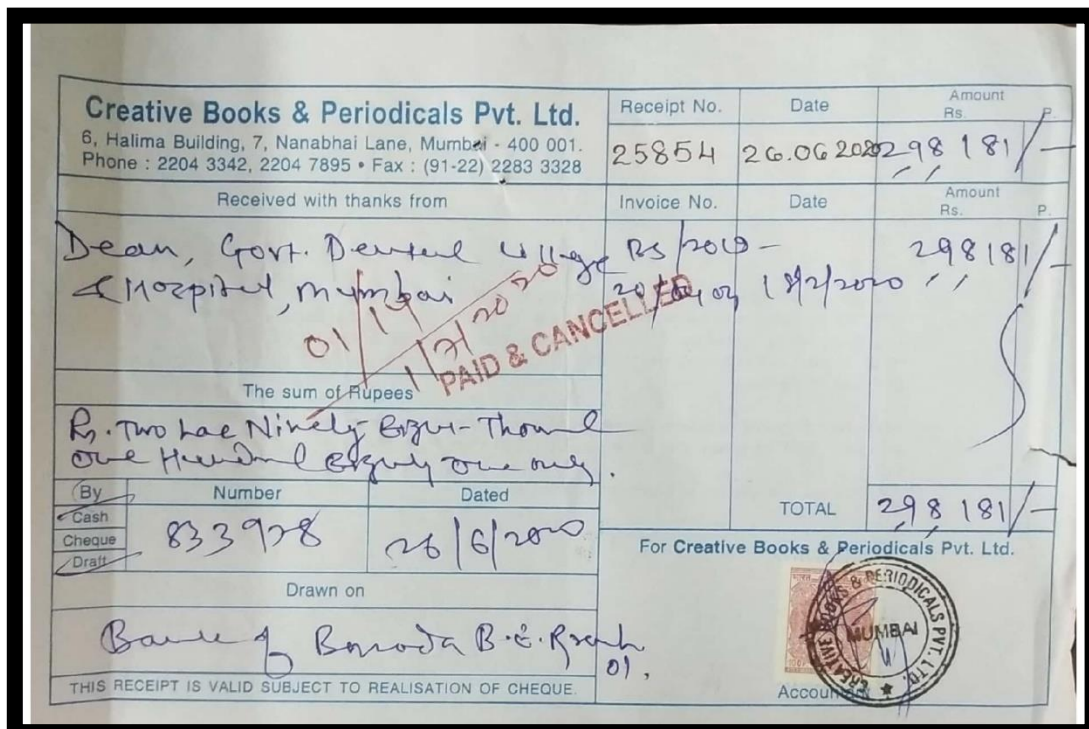 Creative Books & Periodicals Pvt. Ltd.
6, Halima Building, 7, Nanabhai Lane, Mumbai - 400 001.
Phone : 2204 3342, 2204 7895 • Fax : (91-22) 2283 3328
Receipt No. Date Amount
Rs. P.
25854 26.06.2020 298181/-
Received with thanks from
Invoice No. Date Amount
Rs. P.
Dean, Govt. Dental College
& Hospital, Mumbai
18/2/2020 298181/-
PAID & CANCELLED
The sum of Rupees
Rs. Two Lac Ninety Eight Thousand
One Hundred Eighty one only.
By Number Dated
Cash
Cheque
Draft
833928 26/6/2020
TOTAL 298181/-
For Creative Books & Periodicals Pvt. Ltd.
Drawn on
Bank of Baroda
01.
CREATIVE BOOKS & PERIODICALS PVT. LTD.
MUMBAI
Accountant
THIS RECEIPT IS VALID SUBJECT TO REALISATION OF CHEQUE.